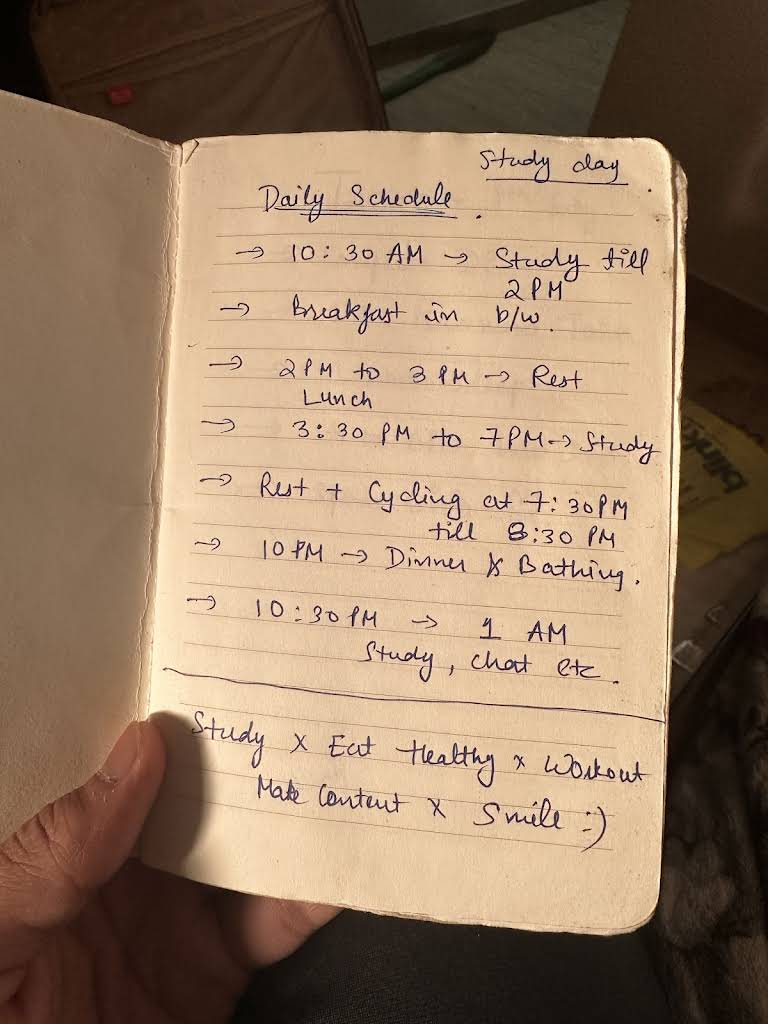 Study day
Daily Schedule.
→ 10:30 AM → Study till
2 PM
→ Breakfast in b/w.
→ 2PM to 3 PM → Rest
Lunch
→ 3:30 PM to 7PM → Study
→ Rest + Cycling at 7:30PM
till 8:30 PM
→ 10PM → Dinner & Bathing.
→ 10:30PM → 1 AM
Study, chat etc.
Study x Eat Healthy x Workout
Make Content x Smile :)
blink